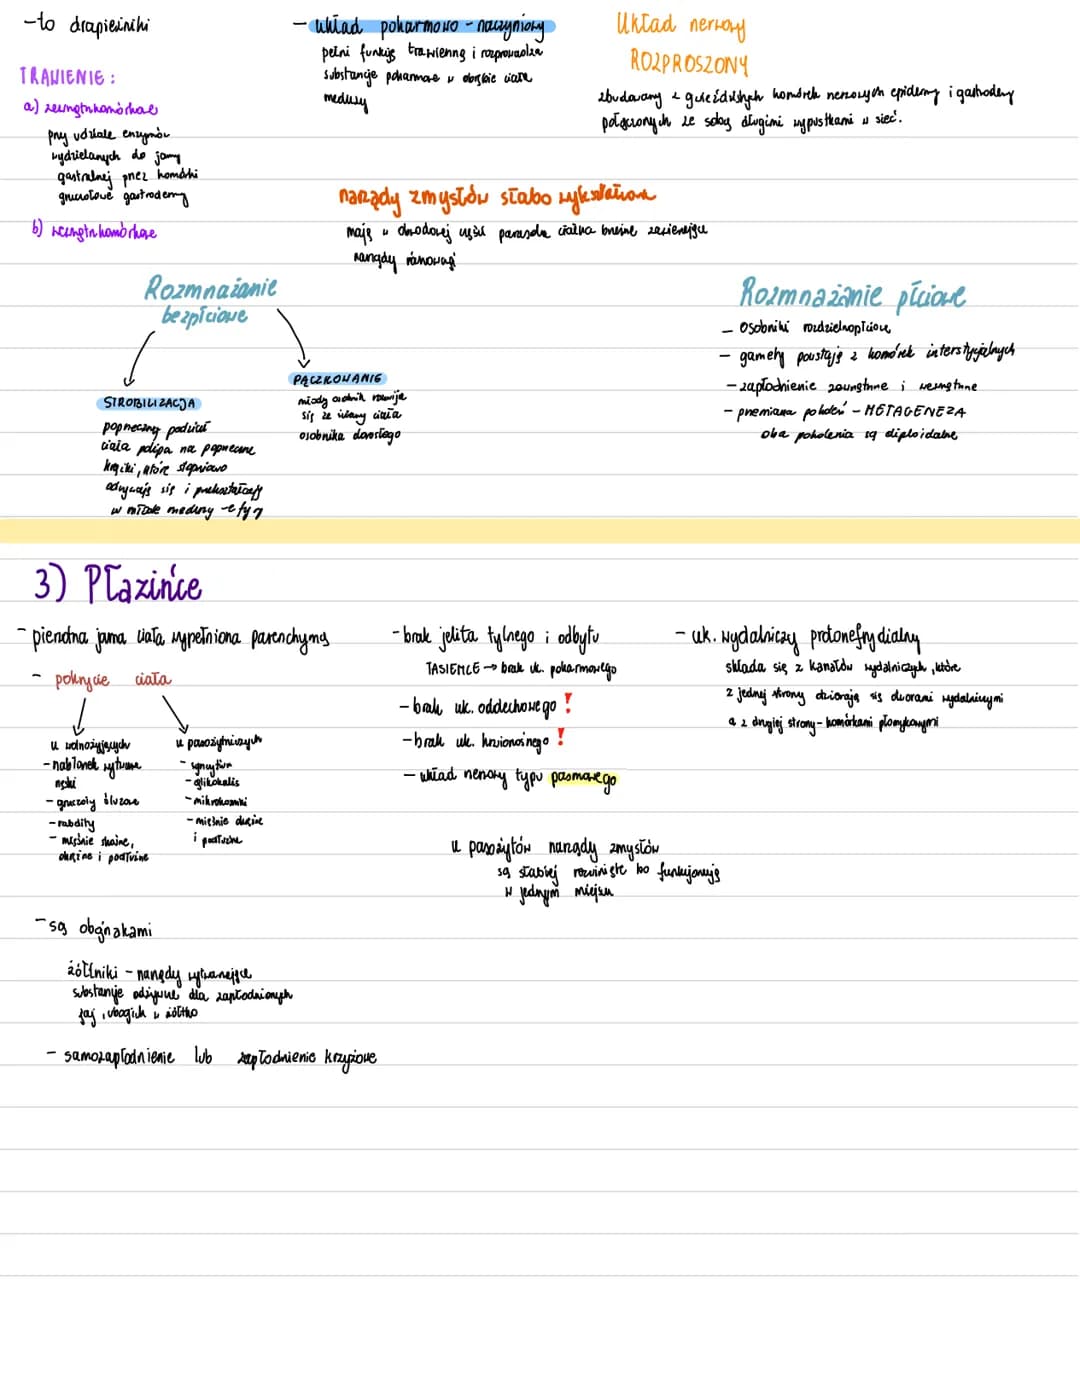 -to drapieżniki
TRAWIENIE:
a) zewnątrzkomórkowe
przy udziale enzymów
wydzielanych do jamy
gastralnej przez komórki
gruczołowe gastrodermy
b) wewnątrzkomórkowe
- układ pokarmowo-naczyniowy
pełni funkcję trawienną i rozprowadza
substancje pokarmowe w obrębie ciała
meduzy
Układ nerwowy
ROZPROSZONY
zbudowany z gwieździstych komórek nerwowych epidermy i gastrodermy
połączonych ze sobą długimi wypustkami w sieć.
narządy zmysłów słabo wykształcone
mają w obwodowej części parasola ciałka brzeżne zawierające
narządy równowagi
Rozmnażanie
bezpłciowe
STROBILIZACJA
poprzeczny podział
ciała polipa na poprzeczne
krążki, które stopniowo
odrywają się i przekształcają
w młode meduzy - efyry
PĄCZKOWANIE
młody osobnik rozwija
się ze ściany ciała
osobnika dorosłego
Rozmnażanie płciowe
- osobniki rozdzielnopłciowe
- gamety powstają z komórek interstycjalnych
- zapłodnienie zewnętrzne i wewnętrzne
- przemiana pokoleń - METAGENEZA
oba pokolenia są diploidalne
3) Płazińce
- pierwotna jama ciała wypełniona parenchymą
- pokrycie ciała
u wolnożyjących
- nabłonek wytwarza
rzęski
- gruczoły śluzowe
- rabdity
- mięśnie skośne,
okrężne i podłużne
u pasożytniczych
- syncytium
- glikokaliks
- mikrokosmki
- mięśnie okrężne
i podłużne
- są obojnakami
żółtniki - narządy wytwarzające
substancje odżywcze dla zapłodnionych
jaj, ubogich w żółtko
- samozapłodnienie lub zapłodnienie krzyżowe
- brak jelita tylnego i odbytu
TASIEMCE → brak uk. pokarmowego
- brak uk. oddechowego !
- brak uk. krwionośnego !
- układ nerwowy typu pasmowego
u pasożytów narządy zmysłów
są słabiej rozwinięte bo funkcjonują
w jednym miejscu
- uk. wydalniczy protonefrydialny
składa się z kanałów wydalniczych, które
z jednej strony otwierają się otworami wydalniczymi
a z drugiej strony - komórkami płomykowymi